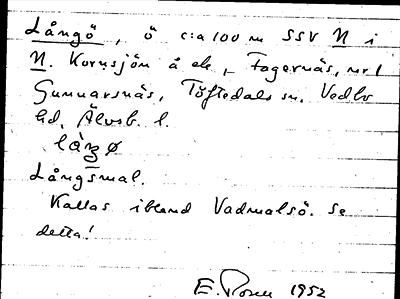 Långö, ö c:a 100 m SSV N i
N. Kornsjön å ek, Fagernäs, nr 1
Gunnarsnäs, Töftedals sn. Vedbo
hd. Älvsb. l.
Långsmal.
Kallas ibland Vadmalsö. Se
detta!
E. 1952